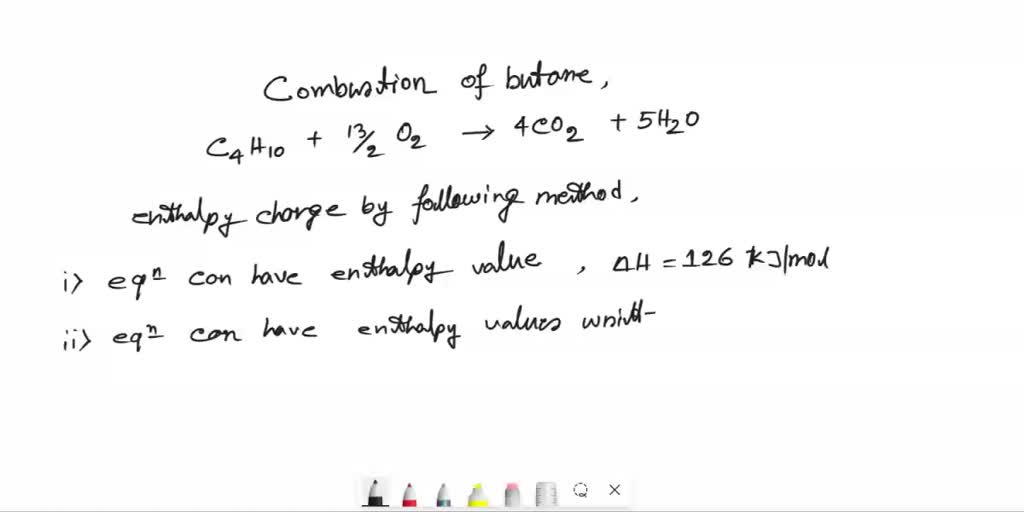 Combustion of butane,
C4H10 + 13/2 O2 → 4CO2 + 5H2O
enthalpy change by following method,
i) eqn can have enthalpy value , ΔH = 126 kJ/mol
ii) eqn can have enthalpy values writt-